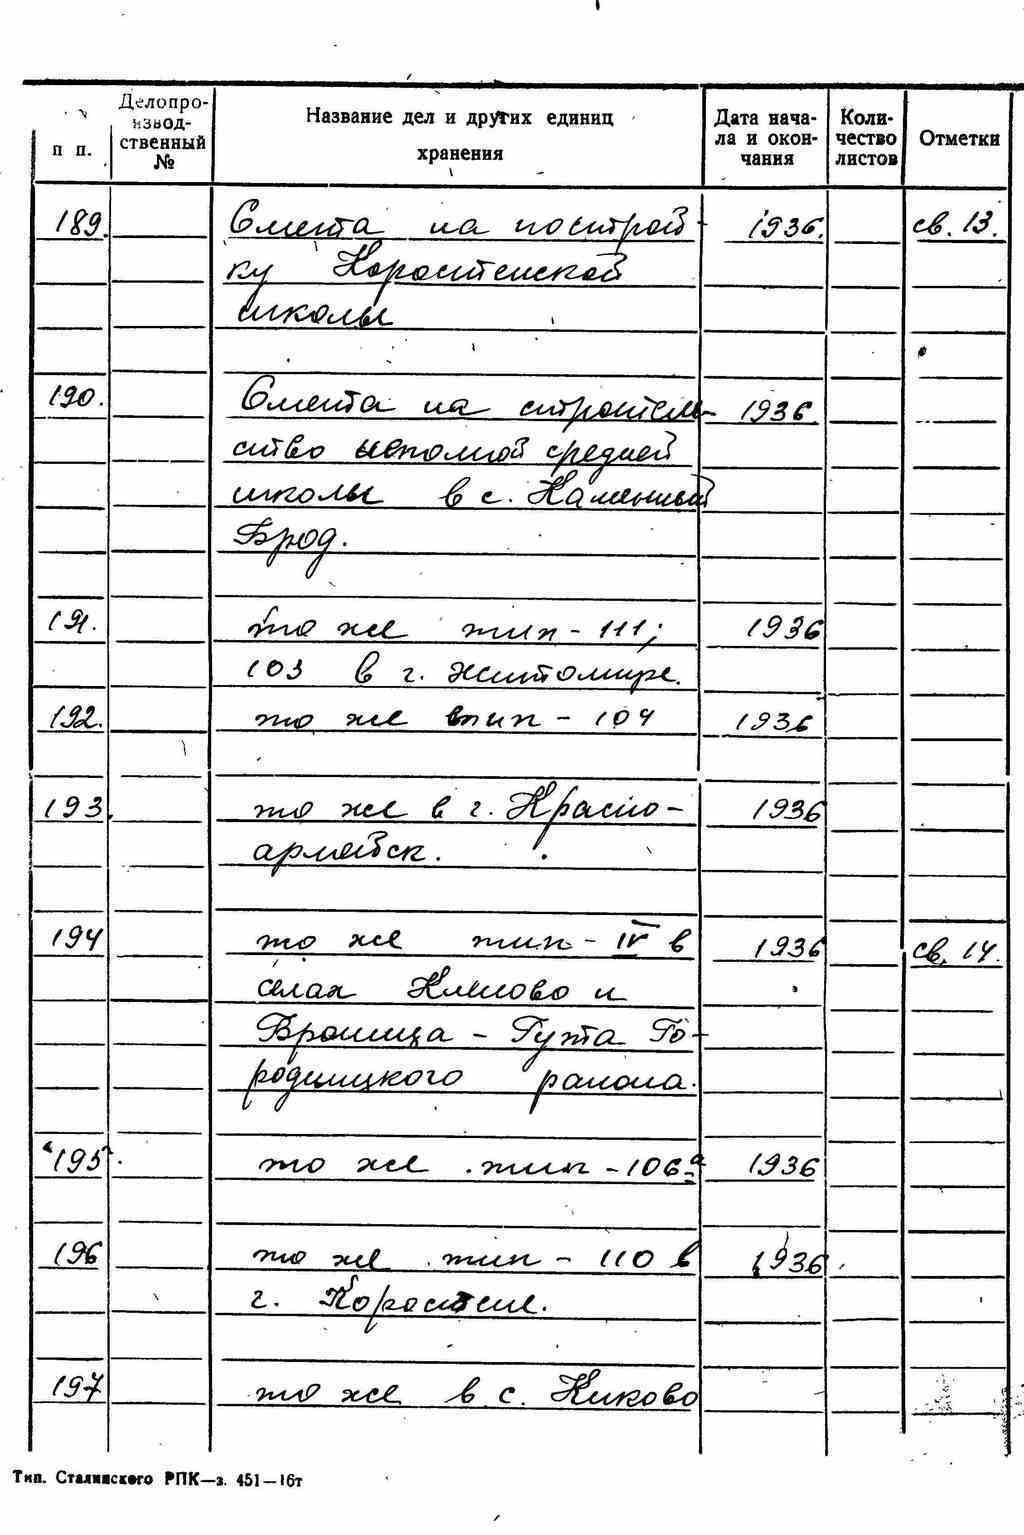 п п.
Делопро-
извод-
ственный
№
Название дел и других единиц
хранения
Дата нача-
ла и окон-
чания
Коли-
чество
листов
Отметки
189. Смета на построй- 1936. св. 13.
ку Коростенской
школы
190. Смета на строитель- 1936.
ство неполной средней
школы в с. Каменный
Брод.
191. то же тип - 111; 1936
103 в г. Житомире.
192. то же тип - 104 1936
193. то же в г. Красно- 1936
армейск.
194 то же тип - IV в 1936 св. 14.
селах Кленово и
Броница - Гута Го-
родницкого района.
195. то же тип - 106а 1936
196 то же тип - 110 в 1936
г. Коростене.
197 то же в с. Киково
Тип. Сталинского РПК—з. 451—16т